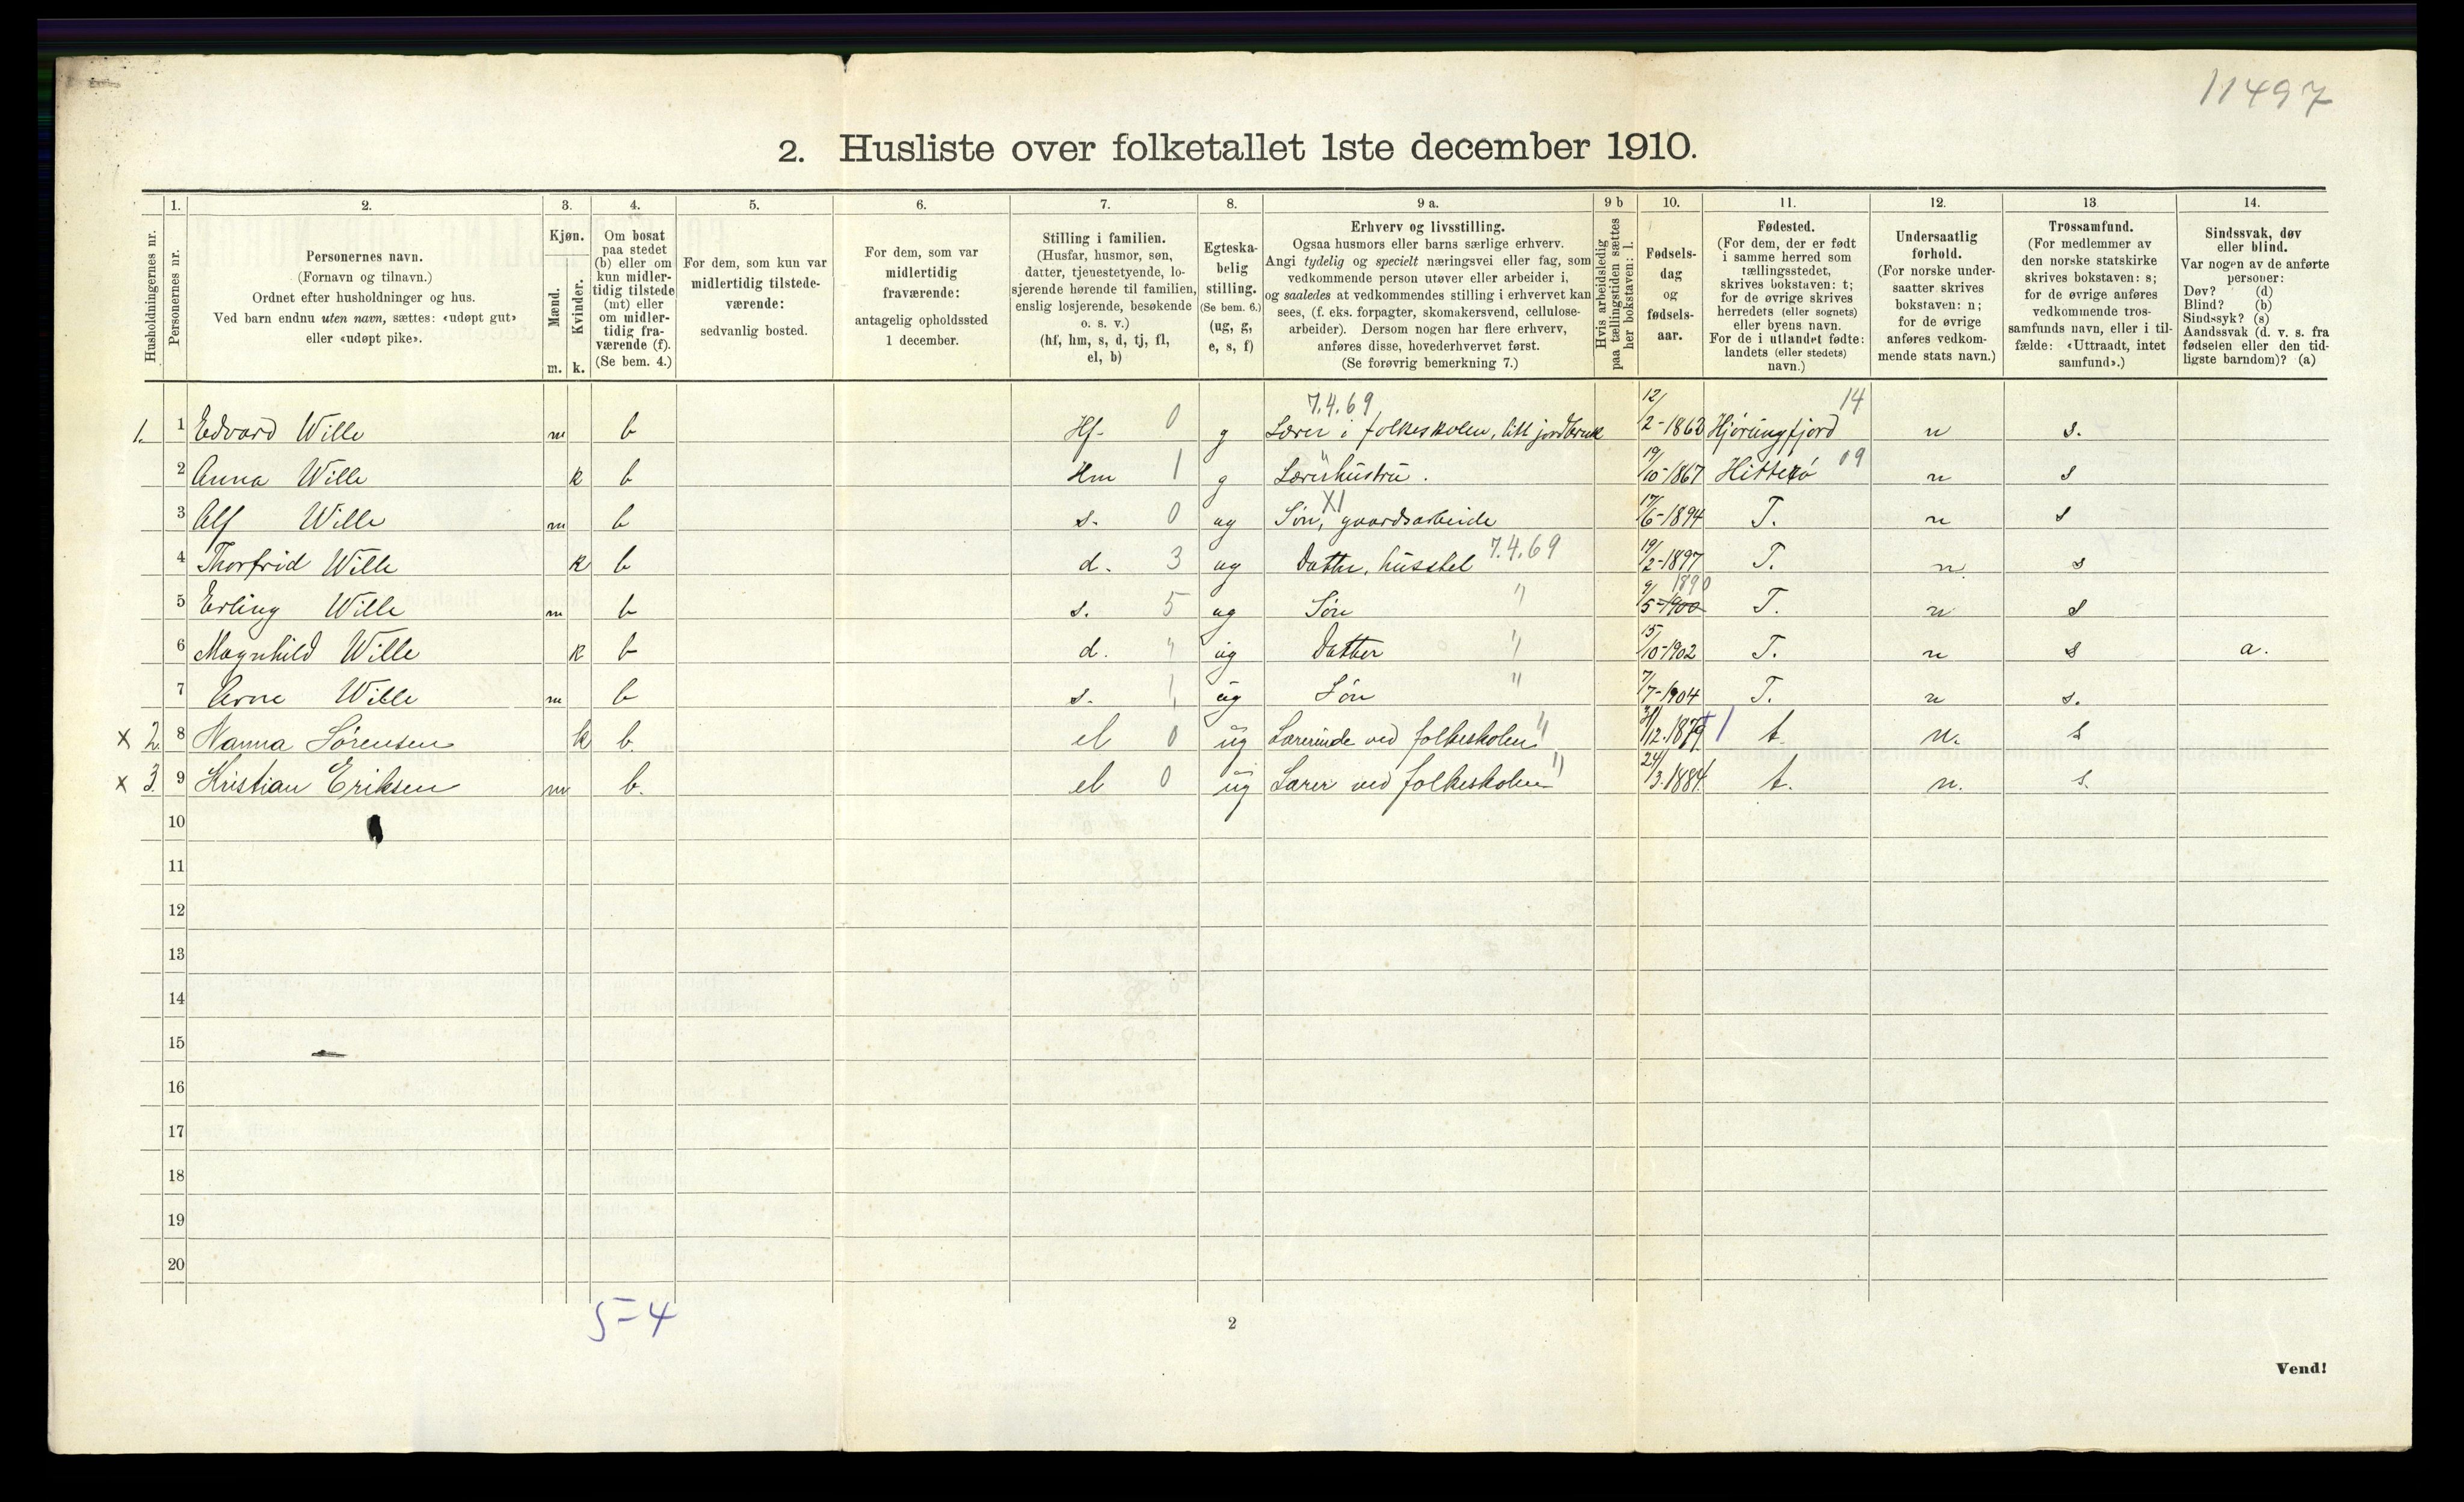 11497
2. Husliste over folketallet 1ste december 1910.
Husholdningernes nr.
1. Personernes nr.
2. Personernes navn. (Fornavn og tilnavn.) Ordnet efter husholdninger og hus. Ved barn endnu uten navn, sættes: «udøpt gut» eller «udøpt pike».
3. Kjøn. Mænd. m. Kvinder. k.
4. Om bosat paa stedet (b) eller om kun midlertidig tilstede (mt) eller om midlertidig fraværende (f). (Se bem. 4.)
5. For dem, som kun var midlertidig tilstedeværende: sedvanlig bosted.
6. For dem, som var midlertidig fraværende: antagelig opholdssted 1 december.
7. Stilling i familien. (Husfar, husmor, søn, datter, tjenestetyende, losjerende hørende til familien, enslig losjerende, besøkende o. s. v.) (hf, hm, s, d, tj, fl, el, b)
8. Egteskabelig stilling. (Se bem. 6.) (ug, g, e, s, f)
9 a. Erhverv og livsstilling. Ogsaa husmors eller barns særlige erhverv. Angi tydelig og specielt næringsvei eller fag, som vedkommende person utøver eller arbeider i, og saaledes at vedkommendes stilling i erhvervet kan sees, (f. eks. forpagter, skomakersvend, cellulosearbeider). Dersom nogen har flere erhverv, anføres disse, hovederhvervet først. (Se forøvrig bemerkning 7.)
9 b Hvis arbeidsledig paa tællingstiden sættes her bokstaven: l.
10. Fødselsdag og fødselsaar.
11. Fødested. (For dem, der er født i samme herred som tællingsstedet, skrives bokstaven: t; for de øvrige skrives herredets (eller sognets) eller byens navn. For de i utlandet fødte: landets (eller stedets) navn.)
12. Undersaatlig forhold. (For norske undersaatter skrives bokstaven: n; for de øvrige anføres vedkommende stats navn.)
13 Trossamfund. (For medlemmer av den norske statskirke skrives bokstaven: s; for de øvrige anføres vedkommende trossamfunds navn, eller i tilfælde: «Uttraadt, intet samfund».)
14. Sindssvak, døv eller blind. Var nogen av de anførte personer: Døv? (d) Blind? (b) Sindssyk? (s) Aandssvak (d. v. s. fra fødselen eller den tidligste barndom)? (a)
7.4.69 14
1. 1 Edvard Wille m b Hf- 0 g Lærer i folkeskolen, litt jordbruk 12/2-1863 Hjørungfjord n s.
2 Anna Wille k b Hm 1 g Lærerhustru. 19/10-1867 Hitterø 09 n s
3 Alf Wille m b s. 0 ug Søn, XI gaardsarbeide 17/6-1894 T. n s
4 Thorfrid Wille k b d. 3 ug Datter, husstel 7.4.69 19/2-1897 T. n s
5 Erling Wille m b s. 5 ug Søn " 9/5-1900 1890 T. n s
6 Magnhild Wille k b d. " ug Datter " 15/10-1902 T. n s a.
7 Arne Wille m b s. ug Søn " 7/7-1904 T. n s.
x 2. 8 Nanna Sørensen k b. el 0 ug Lærerinde ved folkeskolen " t. n. s
x 3. 9 Kristian Eriksen m b. el 0 ug Lærer ved folkeskolen " 24/3.1884. t. n. s.
10
11
12
13
14
15
16
17
18
19
20
5-4
2
Vend!